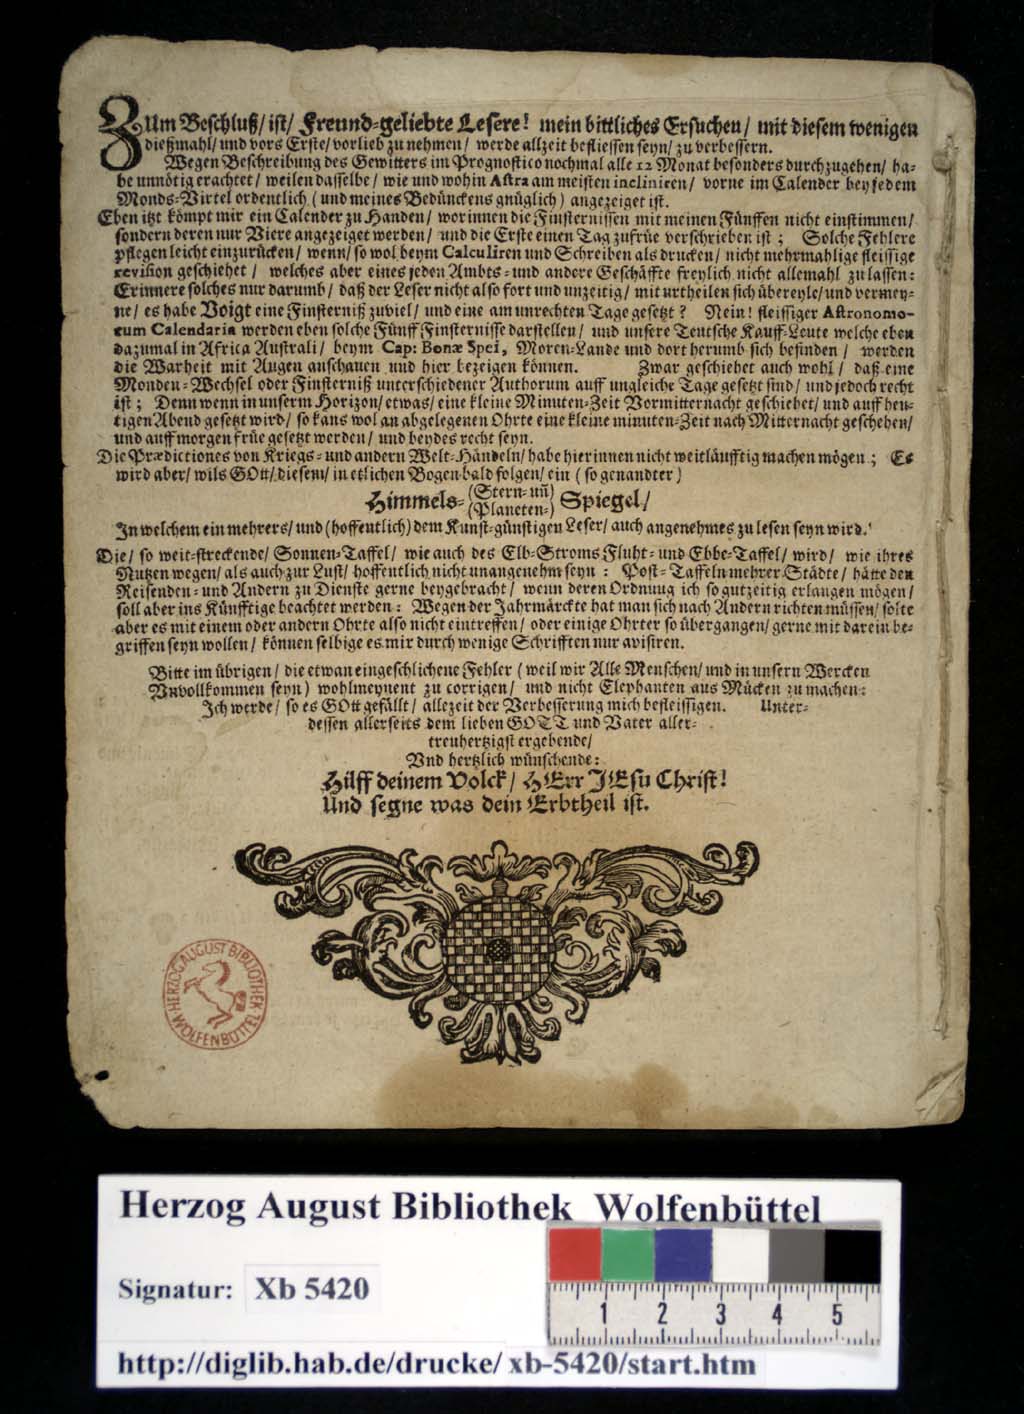 ZUm Beschluß/ ist/ Freund-geliebte Lesere! mein bittliches Ersuchen/ mit diesem wenigen
dießmahl/ und vors Erste/ vorlieb zu nehmen/ werde allzeit befliessen seyn/ zu verbessern.
Wegen Beschreibung des Gewitters im Prognostico nochmal alle 12 Monat besonders durchzugehen/ ha-
be unnötig erachtet/ weilen dasselbe/ wie und wohin Astra am meisten incliniren/ vorne im Calender bey jedem
Monds-Virtel ordentlich (und meines Bedünckens gnüglich) angezeiget ist.
Eben itzt kömpt mir ein Calender zu Handen/ worinnen die Finsternissen mit meinen Fünffen nicht einstimmen/
sondern deren nur Viere angezeiget werden/ und die Erste einen Tag zufrüe verschrieben ist; Solche Fehlere
pflegen leicht einzurücken/ wenn/ so wol beym Calculiren und Schreiben als drucken/ nicht mehrmahlige fleissige
revision geschiehet/ welches aber eines jeden Ambts- und andere Geschäffte freylich nicht allemahl zu lassen:
Erinnere solches nur darumb/ daß der Leser nicht also fort und unzeitig/ mit urtheilen sich übereyle/ und vermey-
ne/ es habe Voigt eine Finsterniß zuviel/ und eine am unrechten Tage gesetzt? Nein! fleissiger Astronomo-
rum Calendaria werden eben solche Fünff Finsternisse darstellen/ und unsere Teutsche Kauff-Leute welche eben
dazumal in Africa Australi/ beym Cap: Bonæ Spei, Moren-Lande und dort herumb sich befinden/ werden
die Warheit mit Augen anschauen und hier bezeigen können. Zwar geschiehet auch wohl/ daß eine
Monden-Wechsel oder Finsterniß unterschiedener Authorum auff ungleiche Tage gesetzt sind/ und jedoch recht
ist; Denn wenn in unserm Horizon/ etwas/ eine kleine Minuten-Zeit Vormitternacht geschiehet/ und auff heu-
tigen Abend gesetzt wird/ so kans wol an abgelegenen Ohrte eine kleine minuten-Zeit nach Mitternacht geschehen/
und auff morgen früe gesetzt werden/ und beydes recht seyn.
Die Prædictiones von Kriegs- und andern Welt-Händeln/ habe hierinnen nicht weitläufftig machen mögen; Es
wird aber/ wils GOtt/ diesem/ in etlichen Bogen bald folgen/ ein (so genandter)
Himmels- (Stern- uñ) Spiegel/
(Planeten-)
In welchem ein mehrers/ und (hoffentlich) dem Kunst-günstigen Leser/ auch angenehmes zu lesen seyn wird.
Die/ so weit-streckende/ Sonnen-Taffel/ wie auch des Elb-Stroms Fluht- und Ebbe-Taffel/ wird/ wie ihres
Nutzen wegen/ als auch zur Lust/ hoffentlich nicht unangenehm seyn: Post-Taffeln mehrer Städte/ hätte den
Reisenden- und Andern zu Dienste gerne beygebracht/ wenn deren Ordnung ich so gutzeitig erlangen mögen/
soll aber ins Künfftige beachtet werden: Wegen der Jahrmärckte hat man sich nach Andern richten müssen/ solte
aber es mit einem oder andern Ohrte also nicht eintreffen/ oder einige Ohrter so übergangen/ gerne mit darein be-
griffen seyn wollen/ können selbige es mir durch wenige Schrifften nur avisiren.
Bitte im übrigen/ die etwan eingeschlichene Fehler (weil wir Alle Menschen/ und in unsern Wercken
Unvollkommen seyn) wohlmeynent zu corrigen/ und nicht Elephanten aus Mücken zu machen:
Ich werde/ so es GOtt gefällt/ allezeit der Verbesserung mich befleissigen. Unter-
dessen allerseits dem lieben GOTT und Vater aller-
treuhertzigst ergebende/
Und hertzlich wünschende:
Hilff deinem Volck/ HErr JEsu Christ!
Und segne was dein Erbtheil ist.
HERZOG AUGUST BIBLIOTHEK
WOLFENBÜTTEL
Herzog August Bibliothek Wolfenbüttel
Signatur: Xb 5420
1 2 3 4 5
http://diglib.hab.de/drucke/xb-5420/start.htm